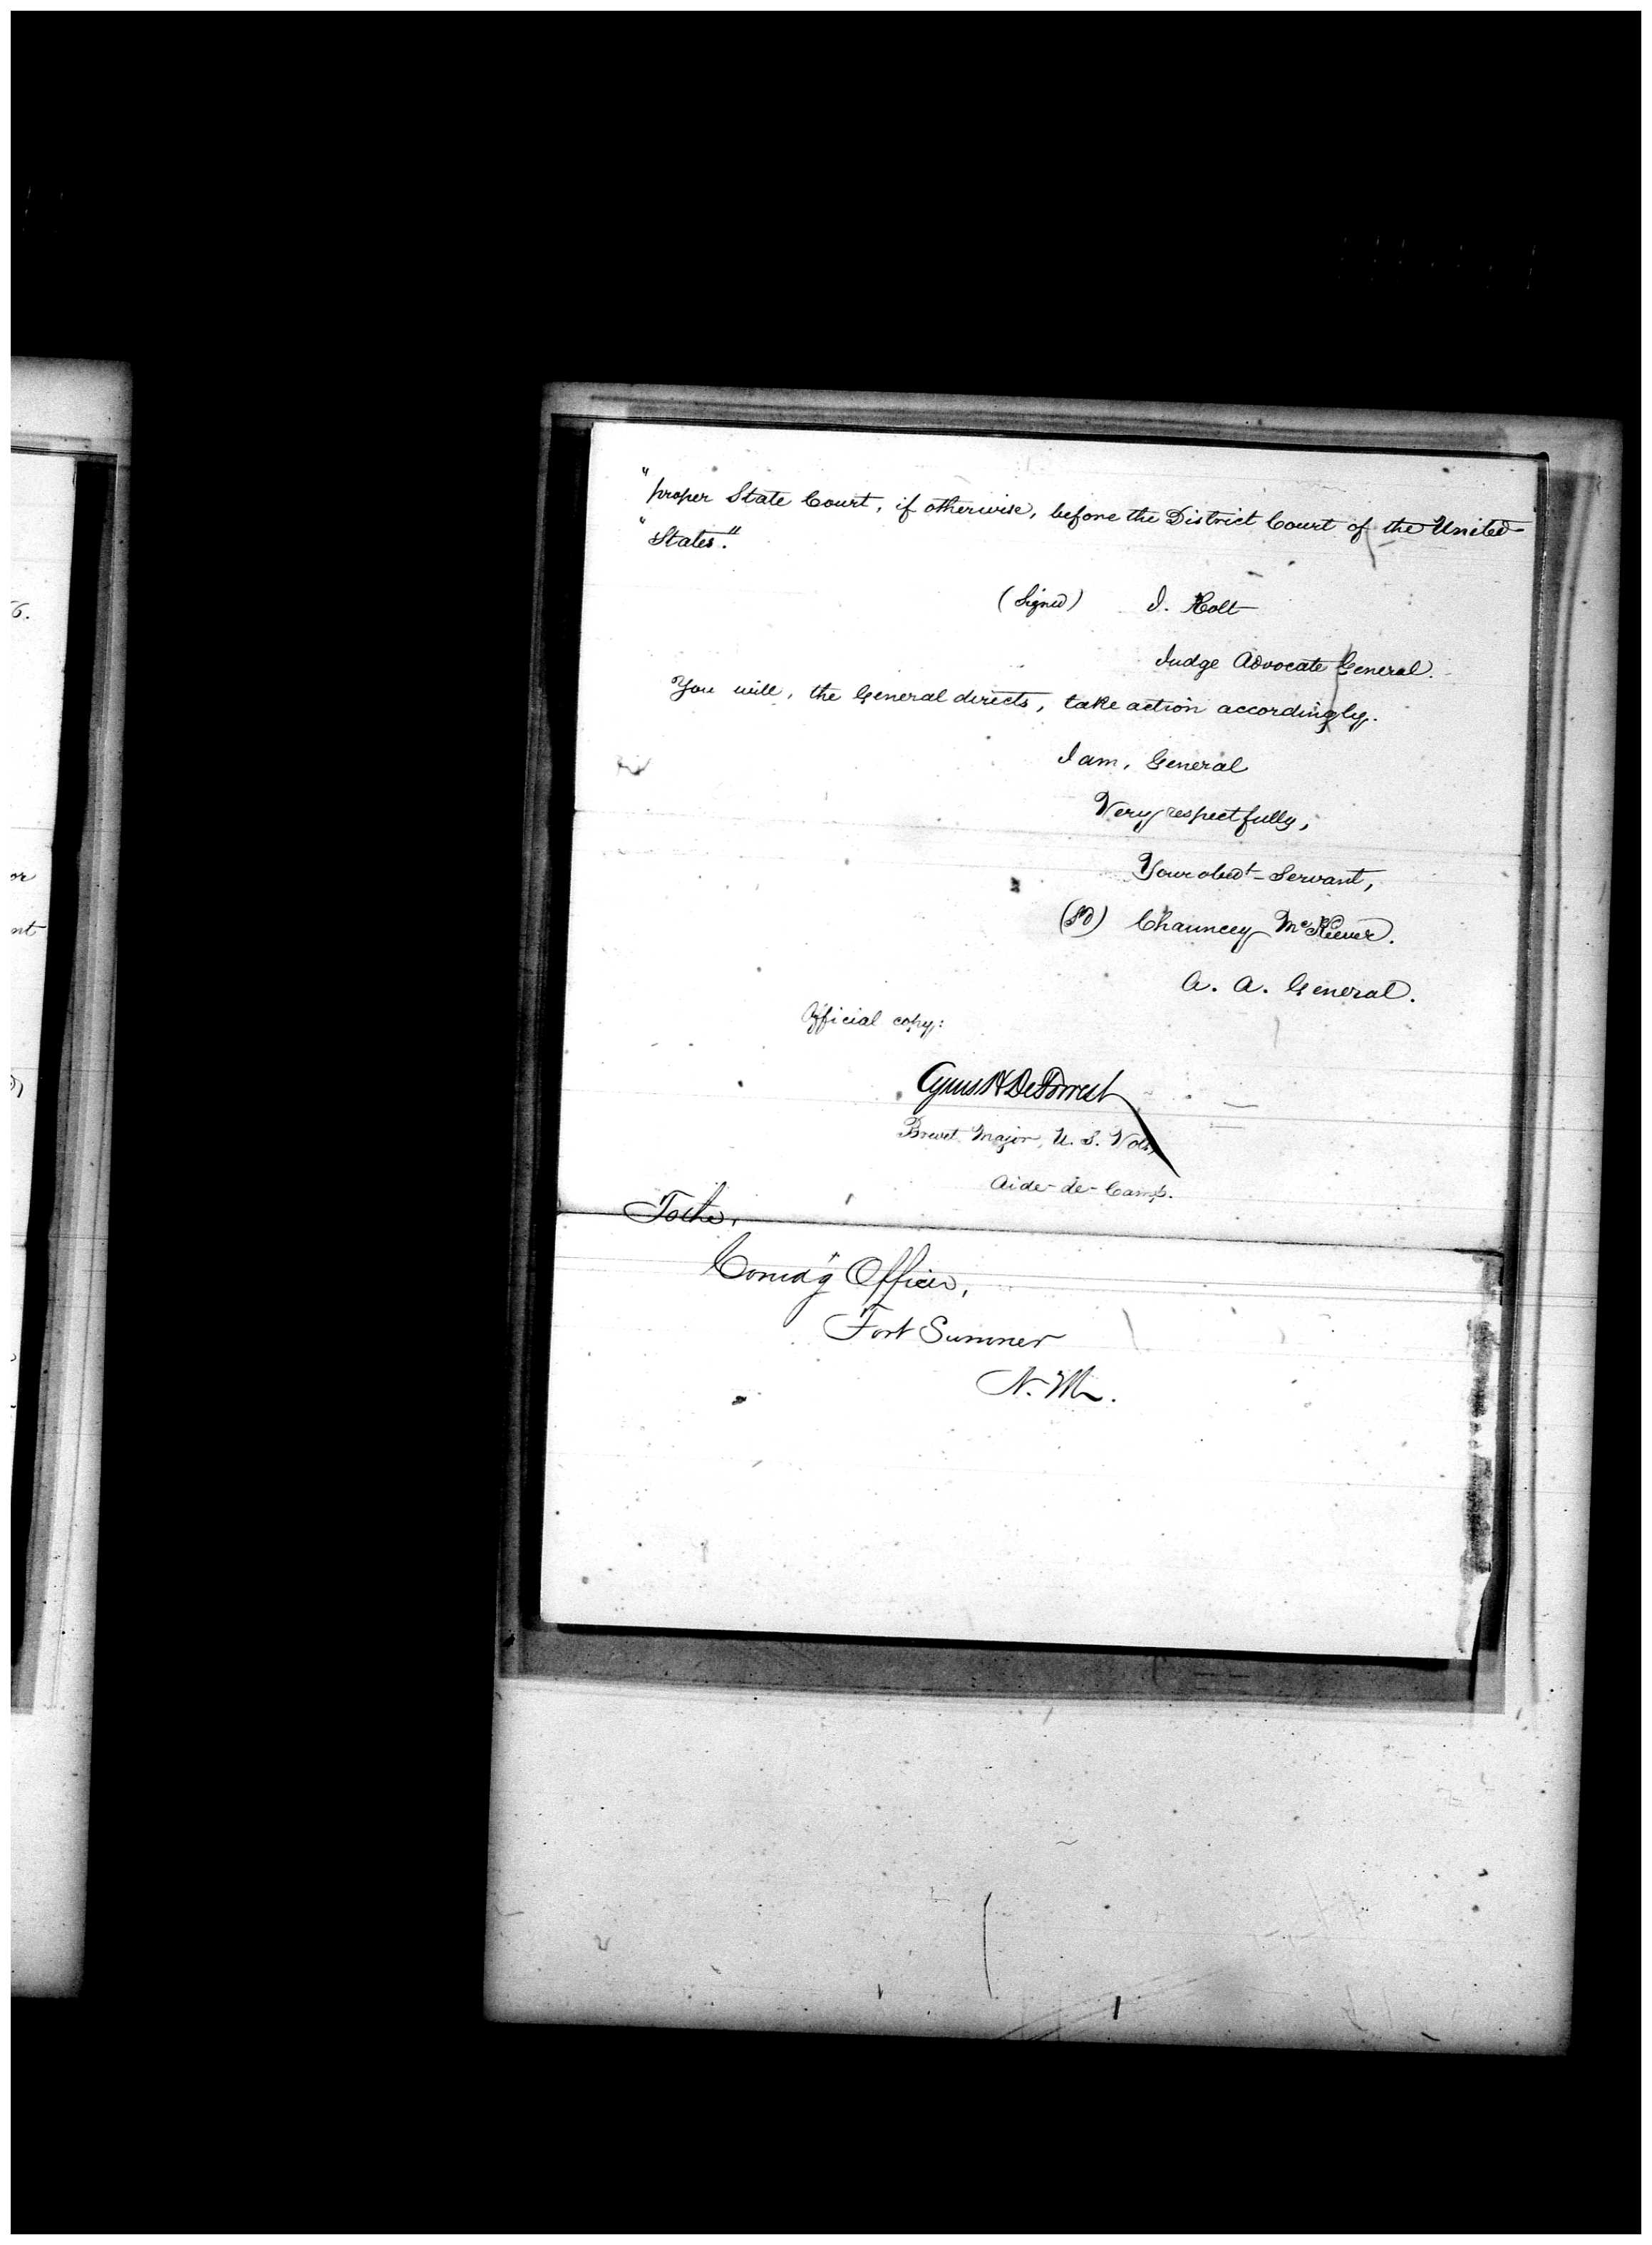 "proper State Court, if otherwise, before the District Court of the United
"States."
(Signed) J. Holt
Judge Advocate General.
You will, the General directs, take action accordingly.
I am, General
Very respectfully,
Your obedt Servant,
(Sd) Chauncey McKeever.
A. A. General.
Official copy:
Cyrus H DeForrest
Brevet Major, U. S. Vols,
Aide-de-Camp.
To the,
Comd'g Officer,
Fort Sumner
N. M.
6.
or
nt